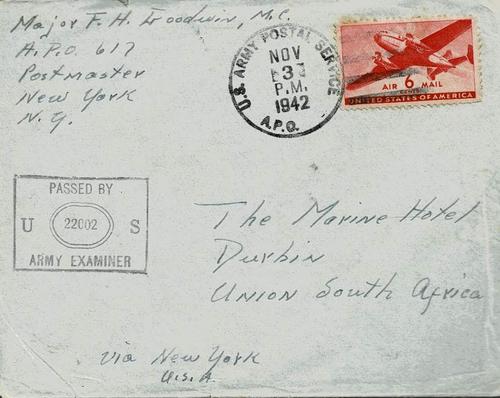 Major F. H. Goodwin, M.C.
A.P.O. 617
Postmaster
New York
N. Y.
U.S. ARMY POSTAL SERVICE
NOV
3
P.M.
1942
A.P.O.
AIR 6 MAIL
CENTS
UNITED STATES OF AMERICA
PASSED BY
U 22002 S
ARMY EXAMINER
The Marine Hotel
Durbin
Union South Africa
via New York
U.S.A.